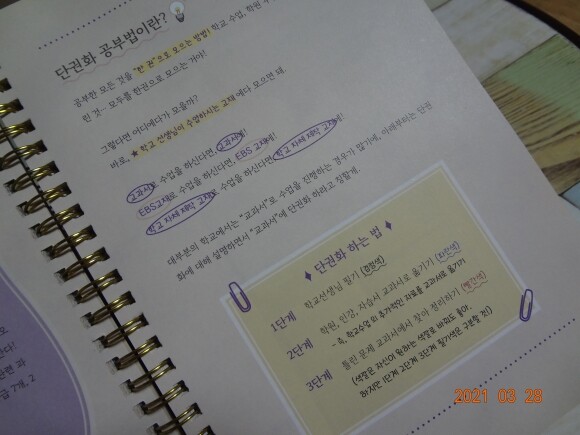 단권화 공부법이란?
공부한 모든 것을 "한 권"으로 모으는 방법! 학교 수업, 학원 수
린 것… 모두를 한권으로 모으는 거야!
그렇다면 어디에다가 모을까?
바로, ★ 학교 선생님이 수업하시는 교재 에다 모으면 돼.
교과서로 수업을 하신다면, 교과서에!
EBS교재로 수업을 하신다면, EBS 교재에!
학교 자체 제작 교재로 수업을 하신다면, 학교 자체 제작 교재에!
대부분의 학교에서는 "교과서"로 수업을 진행하는 경우가 많기에, 아래부터는 단권
화에 대해 설명하면서 "교과서"에 단권화 하라고 칭할게.
단권화 하는 법
1단계 학교선생님 필기 (검정색)
2단계 학원, 인강, 자습서 교과서로 옮기기 (파란색)
- 즉, 학교수업 외 추가적인 자료를 교과서로 옮기기
3단계 틀린 문제 교과서에서 찾아 정리하기 (빨간색)
(색깔은 자신이 원하는 색깔로 바꿔도 좋아.
하지만 1단계 2단계 3단계 필기색은 구분할 것!)
모
한다!
과
급 7개, 2
2021 03 28